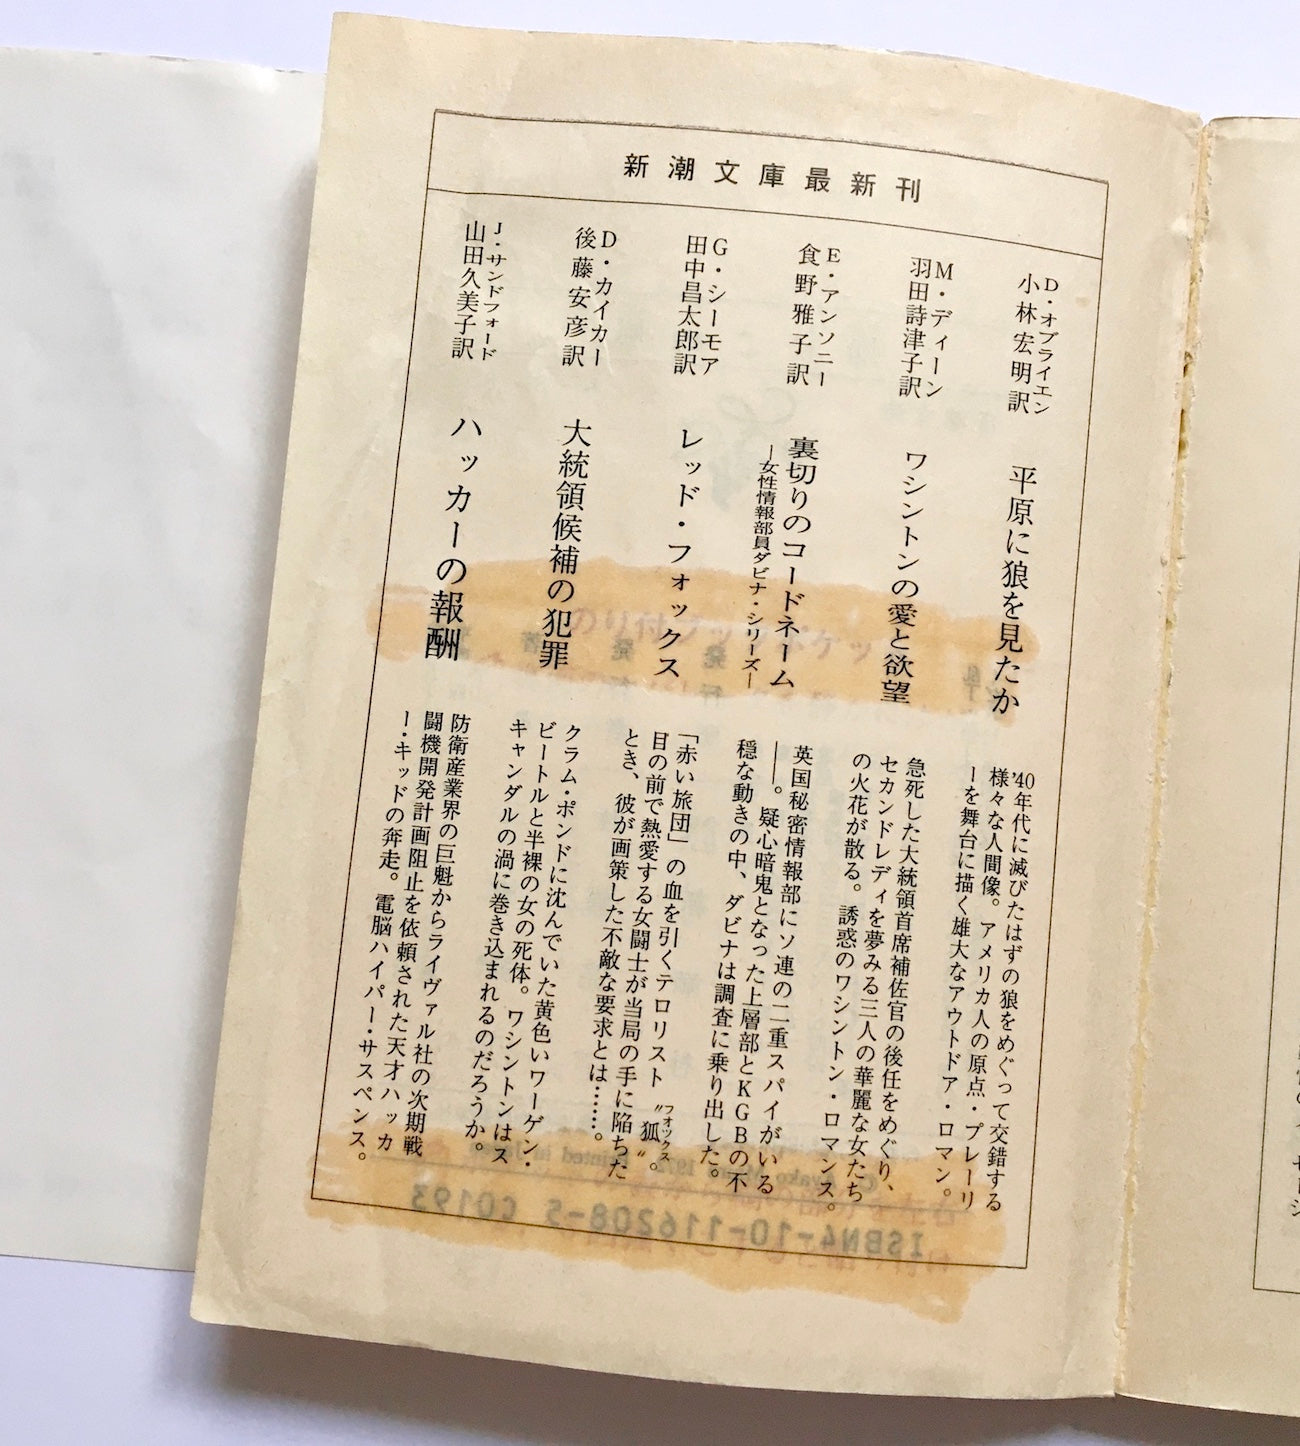 新潮文庫最新刊
D・オブライエン
小林宏明訳
平原に狼を見たか
'40年代に滅びたはずの狼をめぐって交錯する
様々な人間像。アメリカ人の原点・プレーリ
ーを舞台に描く雄大なアウトドア・ロマン。
M・ディーン
羽田詩津子訳
ワシントンの愛と欲望
急死した大統領首席補佐官の後任をめぐり、
セカンドレディを夢みる三人の華麗な女たち
の火花が散る。誘惑のワシントン・ロマンス。
E・アンソニー
食野雅子訳
裏切りのコードネーム
―女性情報部員ダビナ・シリーズ―
英国秘密情報部にソ連の二重スパイがいる
――。疑心暗鬼となった上層部とKGBの不
穏な動きの中、ダビナは調査に乗り出した。
G・シーモア
田中昌太郎訳
レッド・フォックス
「赤い旅団」の血を引くテロリスト〝狐〟。
フォックス
目の前で熱愛する女闘士が当局の手に陥ちた
とき、彼が画策した不敵な要求とは……。
D・カイカー
後藤安彦訳
大統領候補の犯罪
クラム・ポンドに沈んでいた黄色いワーゲン・
ビートルと半裸の女の死体。ワシントンはス
キャンダルの渦に巻き込まれるのだろうか。
J・サンドフォード
山田久美子訳
ハッカーの報酬
防衛産業界の巨魁からライヴァル社の次期戦
闘機開発計画阻止を依頼された天才ハッカ
ー・キッドの奔走。電脳ハイパー・サスペンス。
ISBN4-10-116208-5 C0193